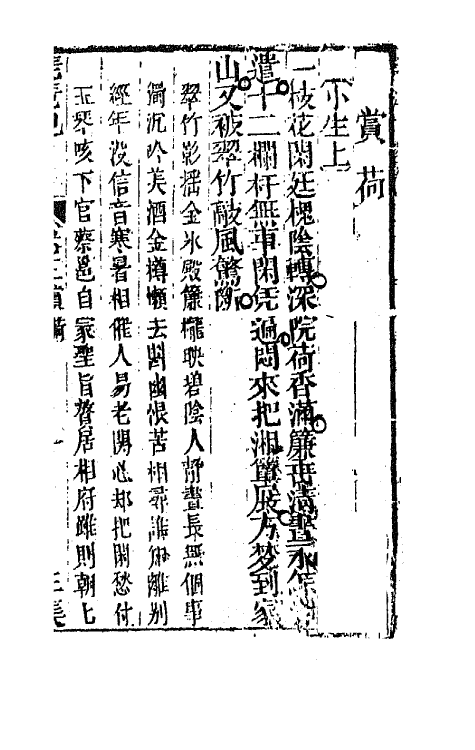 賞荷
小生上
一枝花閑廷槐陰轉深院荷香滿簾垂清晝永怎
遣十二欄杆無事閑凭遍悶來把湘簟展方夢到家
山又被翠竹敲風驚斷
翠竹影搖金水殿簾櫳映碧陰人靜晝長無個事
沉吟美酒金樽懶去斟幽恨苦相尋誰知離別
經年没信音寒暑相催人易老関心却把閑愁付
玉琴咳下官蔡邕自家聖旨贅居相府雖則朝七